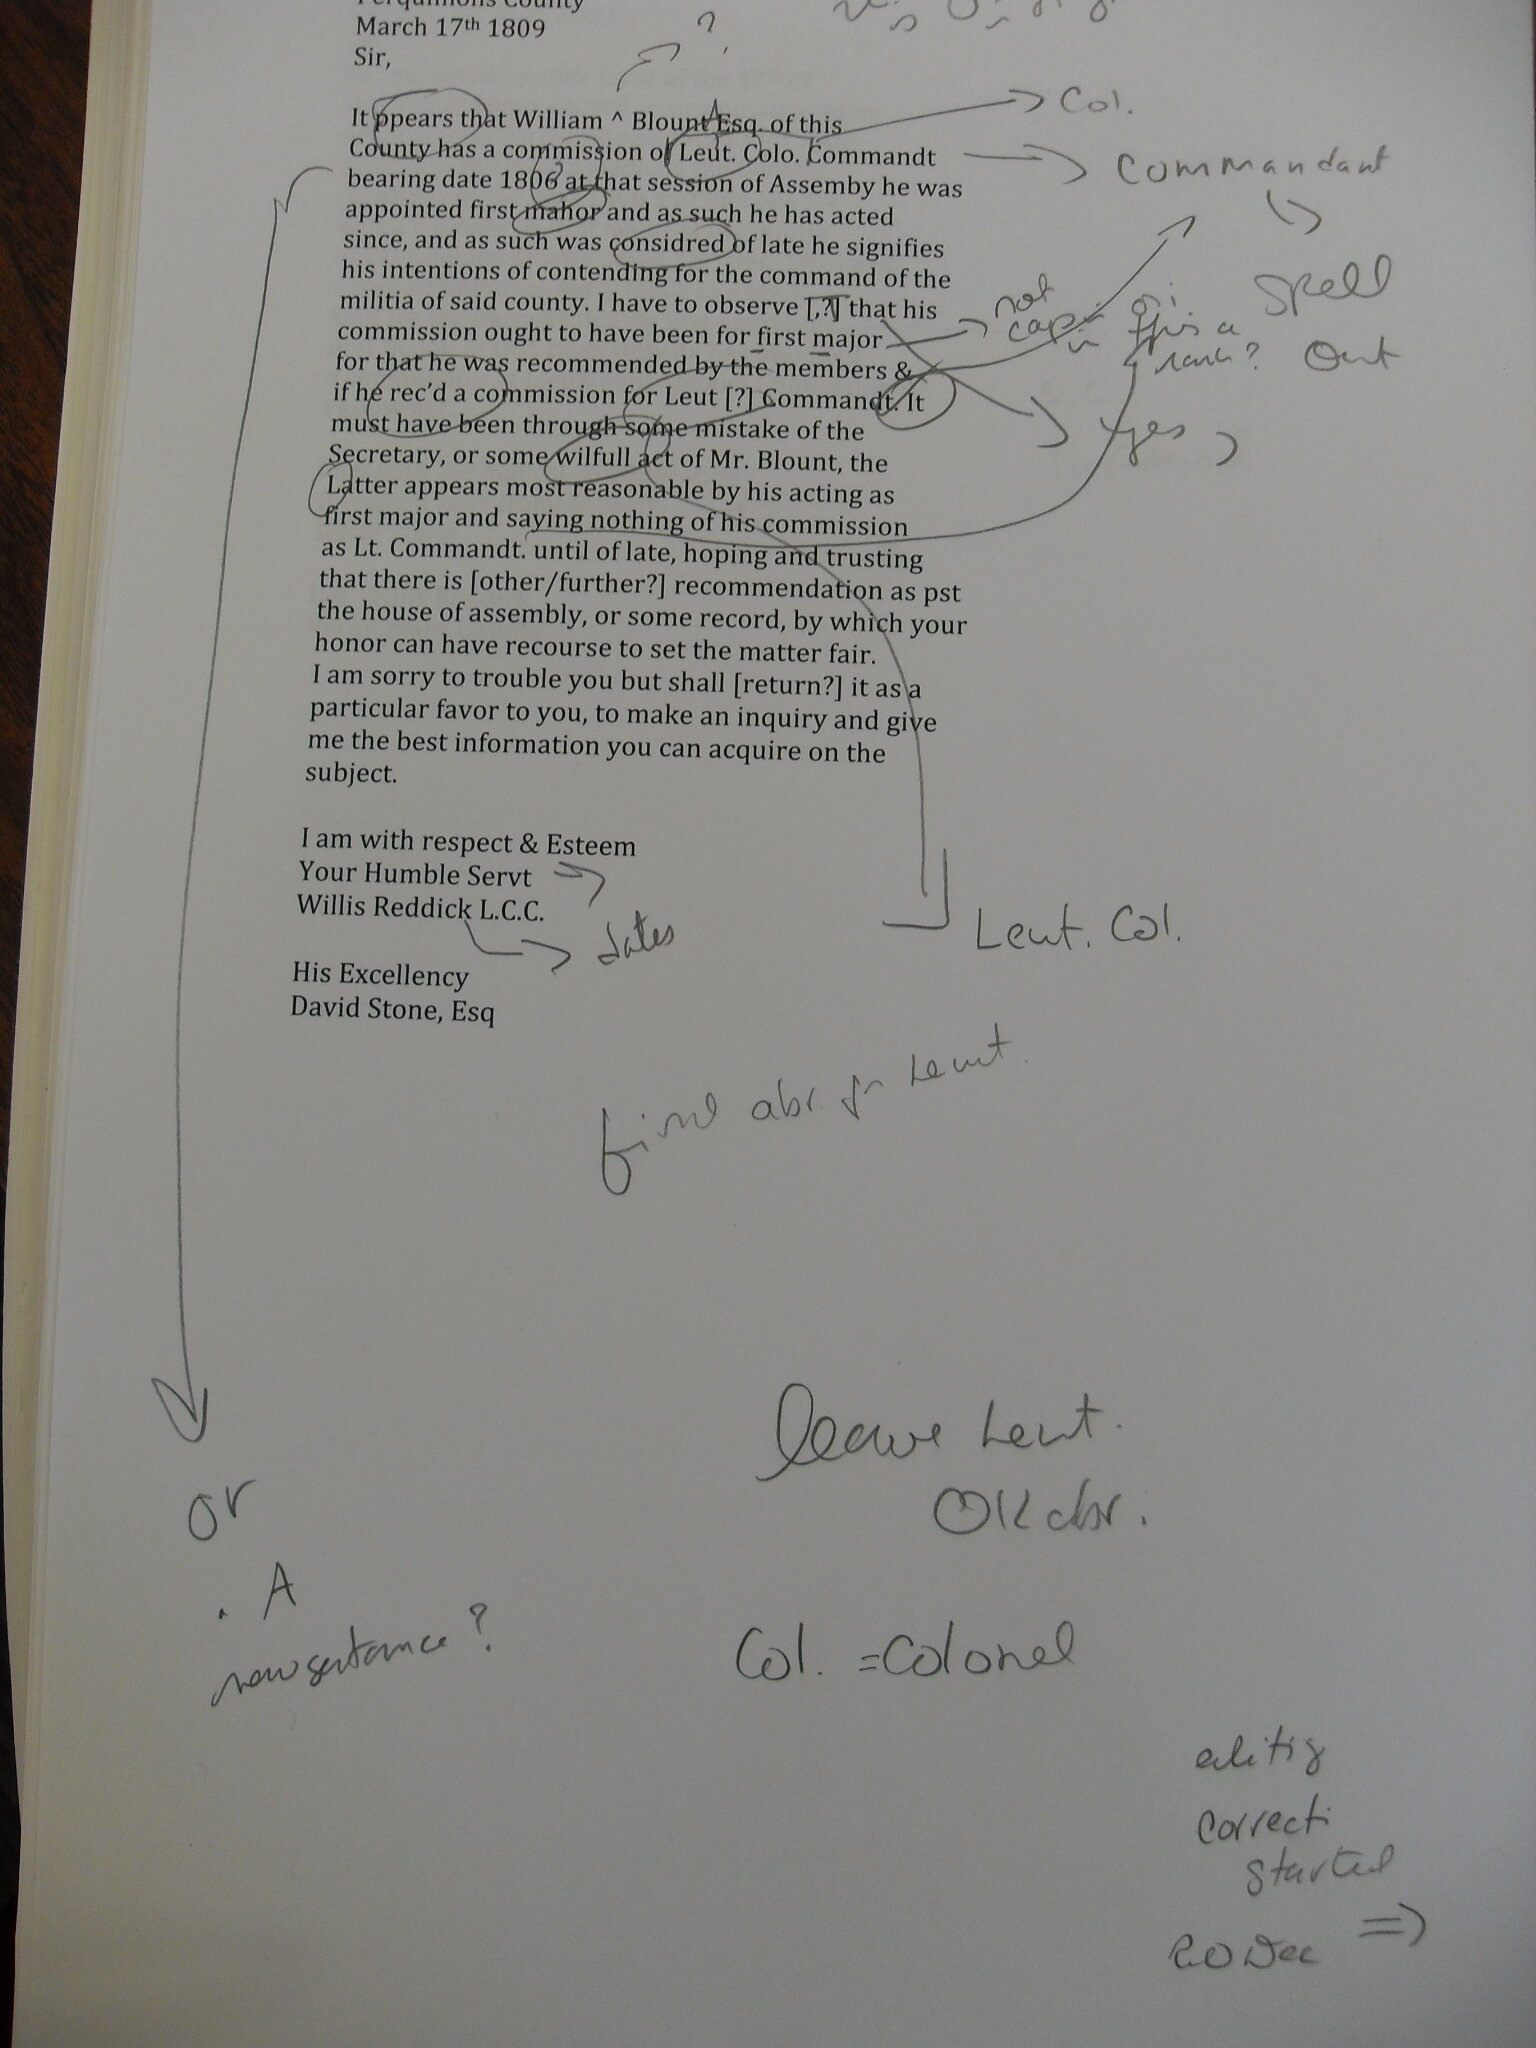 Perquimons County
March 17th 1809
?
Sir,
It ppears that William ^ Blount Esq. of this
Col.
County has a commission of Leut. Colo. Commandt
Commandant
?
bearing date 1806 at that session of Assemby he was
appointed first mahor and as such he has acted
since, and as such was considred of late he signifies
his intentions of contending for the command of the
Spell
Out
militia of said county. I have to observe [,?] that his
not
cap
in
commission ought to have been for first major
rank?
for that he was recommended by the members &
if he rec'd a commission for Leut [?] Commandt. It
must have been through some mistake of the
yes ,
Secretary, or some wilfull act of Mr. Blount, the
Latter appears most reasonable by his acting as
first major and saying nothing of his commission
as Lt. Commandt. until of late, hoping and trusting
that there is [other/further?] recommendation as pst
the house of assembly, or some record, by which your
honor can have recourse to set the matter fair.
I am sorry to trouble you but shall [return?] it as a
particular favor to you, to make an inquiry and give
me the best information you can acquire on the
subject.
I am with respect & Esteem
Your Humble Servt
Willis Reddick L.C.C.
dates
Leut. Col.
His Excellency
David Stone, Esq
find abr. for Leut.
leave Leut.
OK abr.
or
. A
new sentence?
Col. = Colonel
started